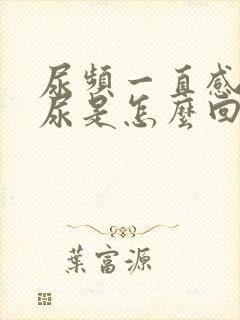 尿頻一直感
尿是怎麼回
葉富源